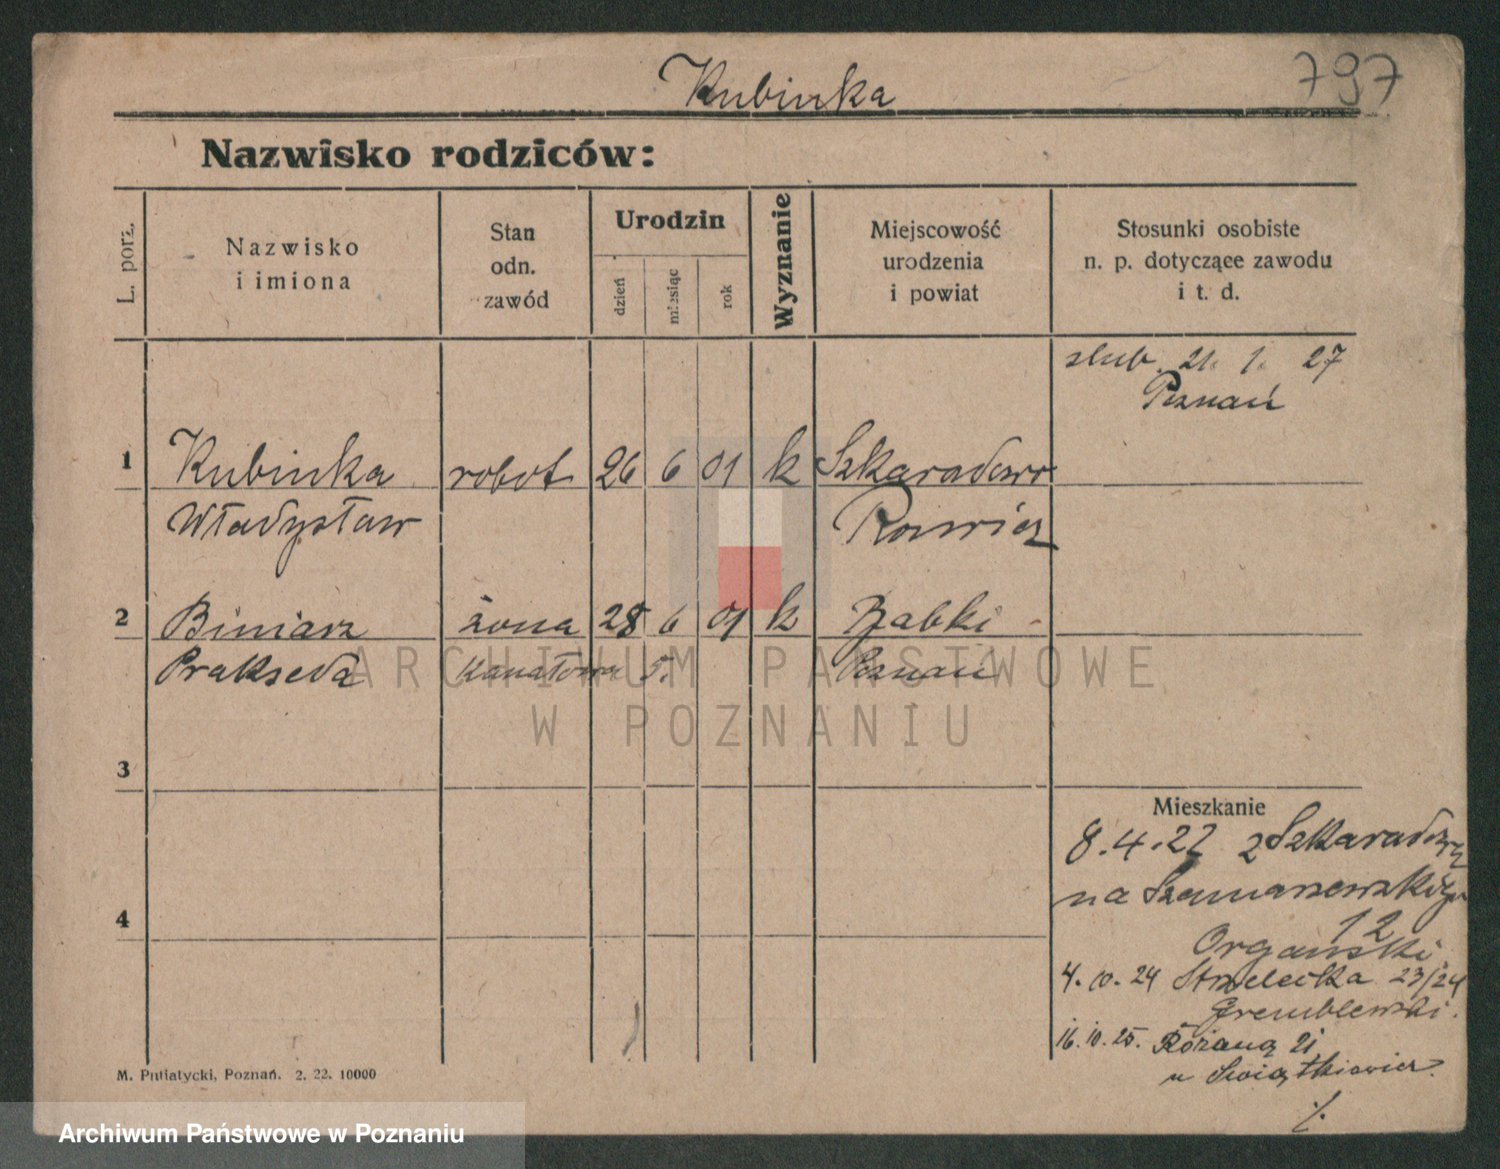 Kubinka
797
Nazwisko rodziców:
L. porz.
Nazwisko
i imiona
Stan
odn.
zawód
Urodzin
dzień
miesiąc
rok
Wyznanie
Miejscowość
urodzenia
i powiat
Stosunki osobiste
n. p. dotyczące zawodu
i t. d.
slub. 21. 1. 27
Poznań
1 Kubinka robot. 26 6 01 k Szkaradowo
Władysław Rawicz
2 Biniarz żona 28 6 01 k Babki
Prakseda Kanałowa 5. Poznań
3
4
Mieszkanie
8.4.22 z Szkaradowa
na Szamarzewskiego
12
Organski
4.10.24 Strzelecka 23/24
Gremblewski.
16.10.25. Różaną 21
u Swiątkiewicz.
/.
M. Putiatycki, Poznań. 2. 22. 10000
ARCHIWUM PAŃSTWOWE
W POZNANIU
Archiwum Państwowe w Poznaniu